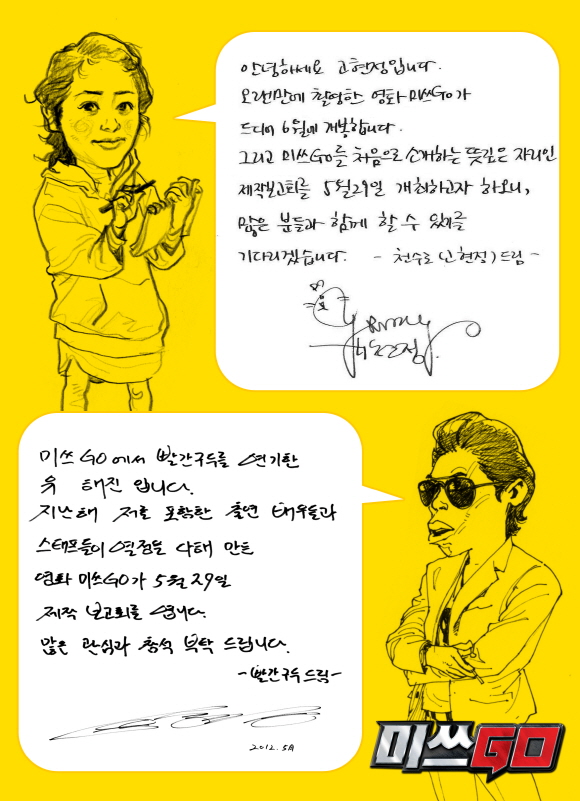 안녕하세요 고현정입니다.
오랜만에 촬영한 영화 미쓰GO가
드디어 6월에 개봉합니다.
그리고 미쓰GO를 처음으로 소개하는 뜻깊은 자리인
제작보고회를 5월29일 개최하고자 하오니,
많은 분들과 함께 할 수 있기를
기다리겠습니다. - 천수로 (고현정) 드림 -
고현정.
미쓰 GO 에서 빨간구두를 연기한
유 해진 입니다.
지난해 저를 포함한 출연 배우들과
스태프들이 열정을 다해 만든
영화 미쓰GO가 5월 29일
제작 보고회를 엽니다.
많은 관심과 참석 부탁 드립니다.
-빨간구두 드림-
2012. 5月
미쓰GO